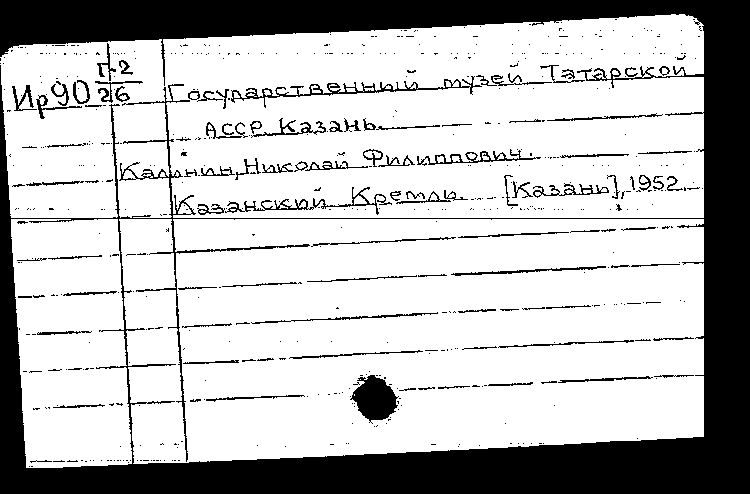 Ир90 Г-2/26
Государственный музей Татарской
АССР. Казань.
Калинин, Николай Филиппович.
Казанский Кремль. [Казань], 1952